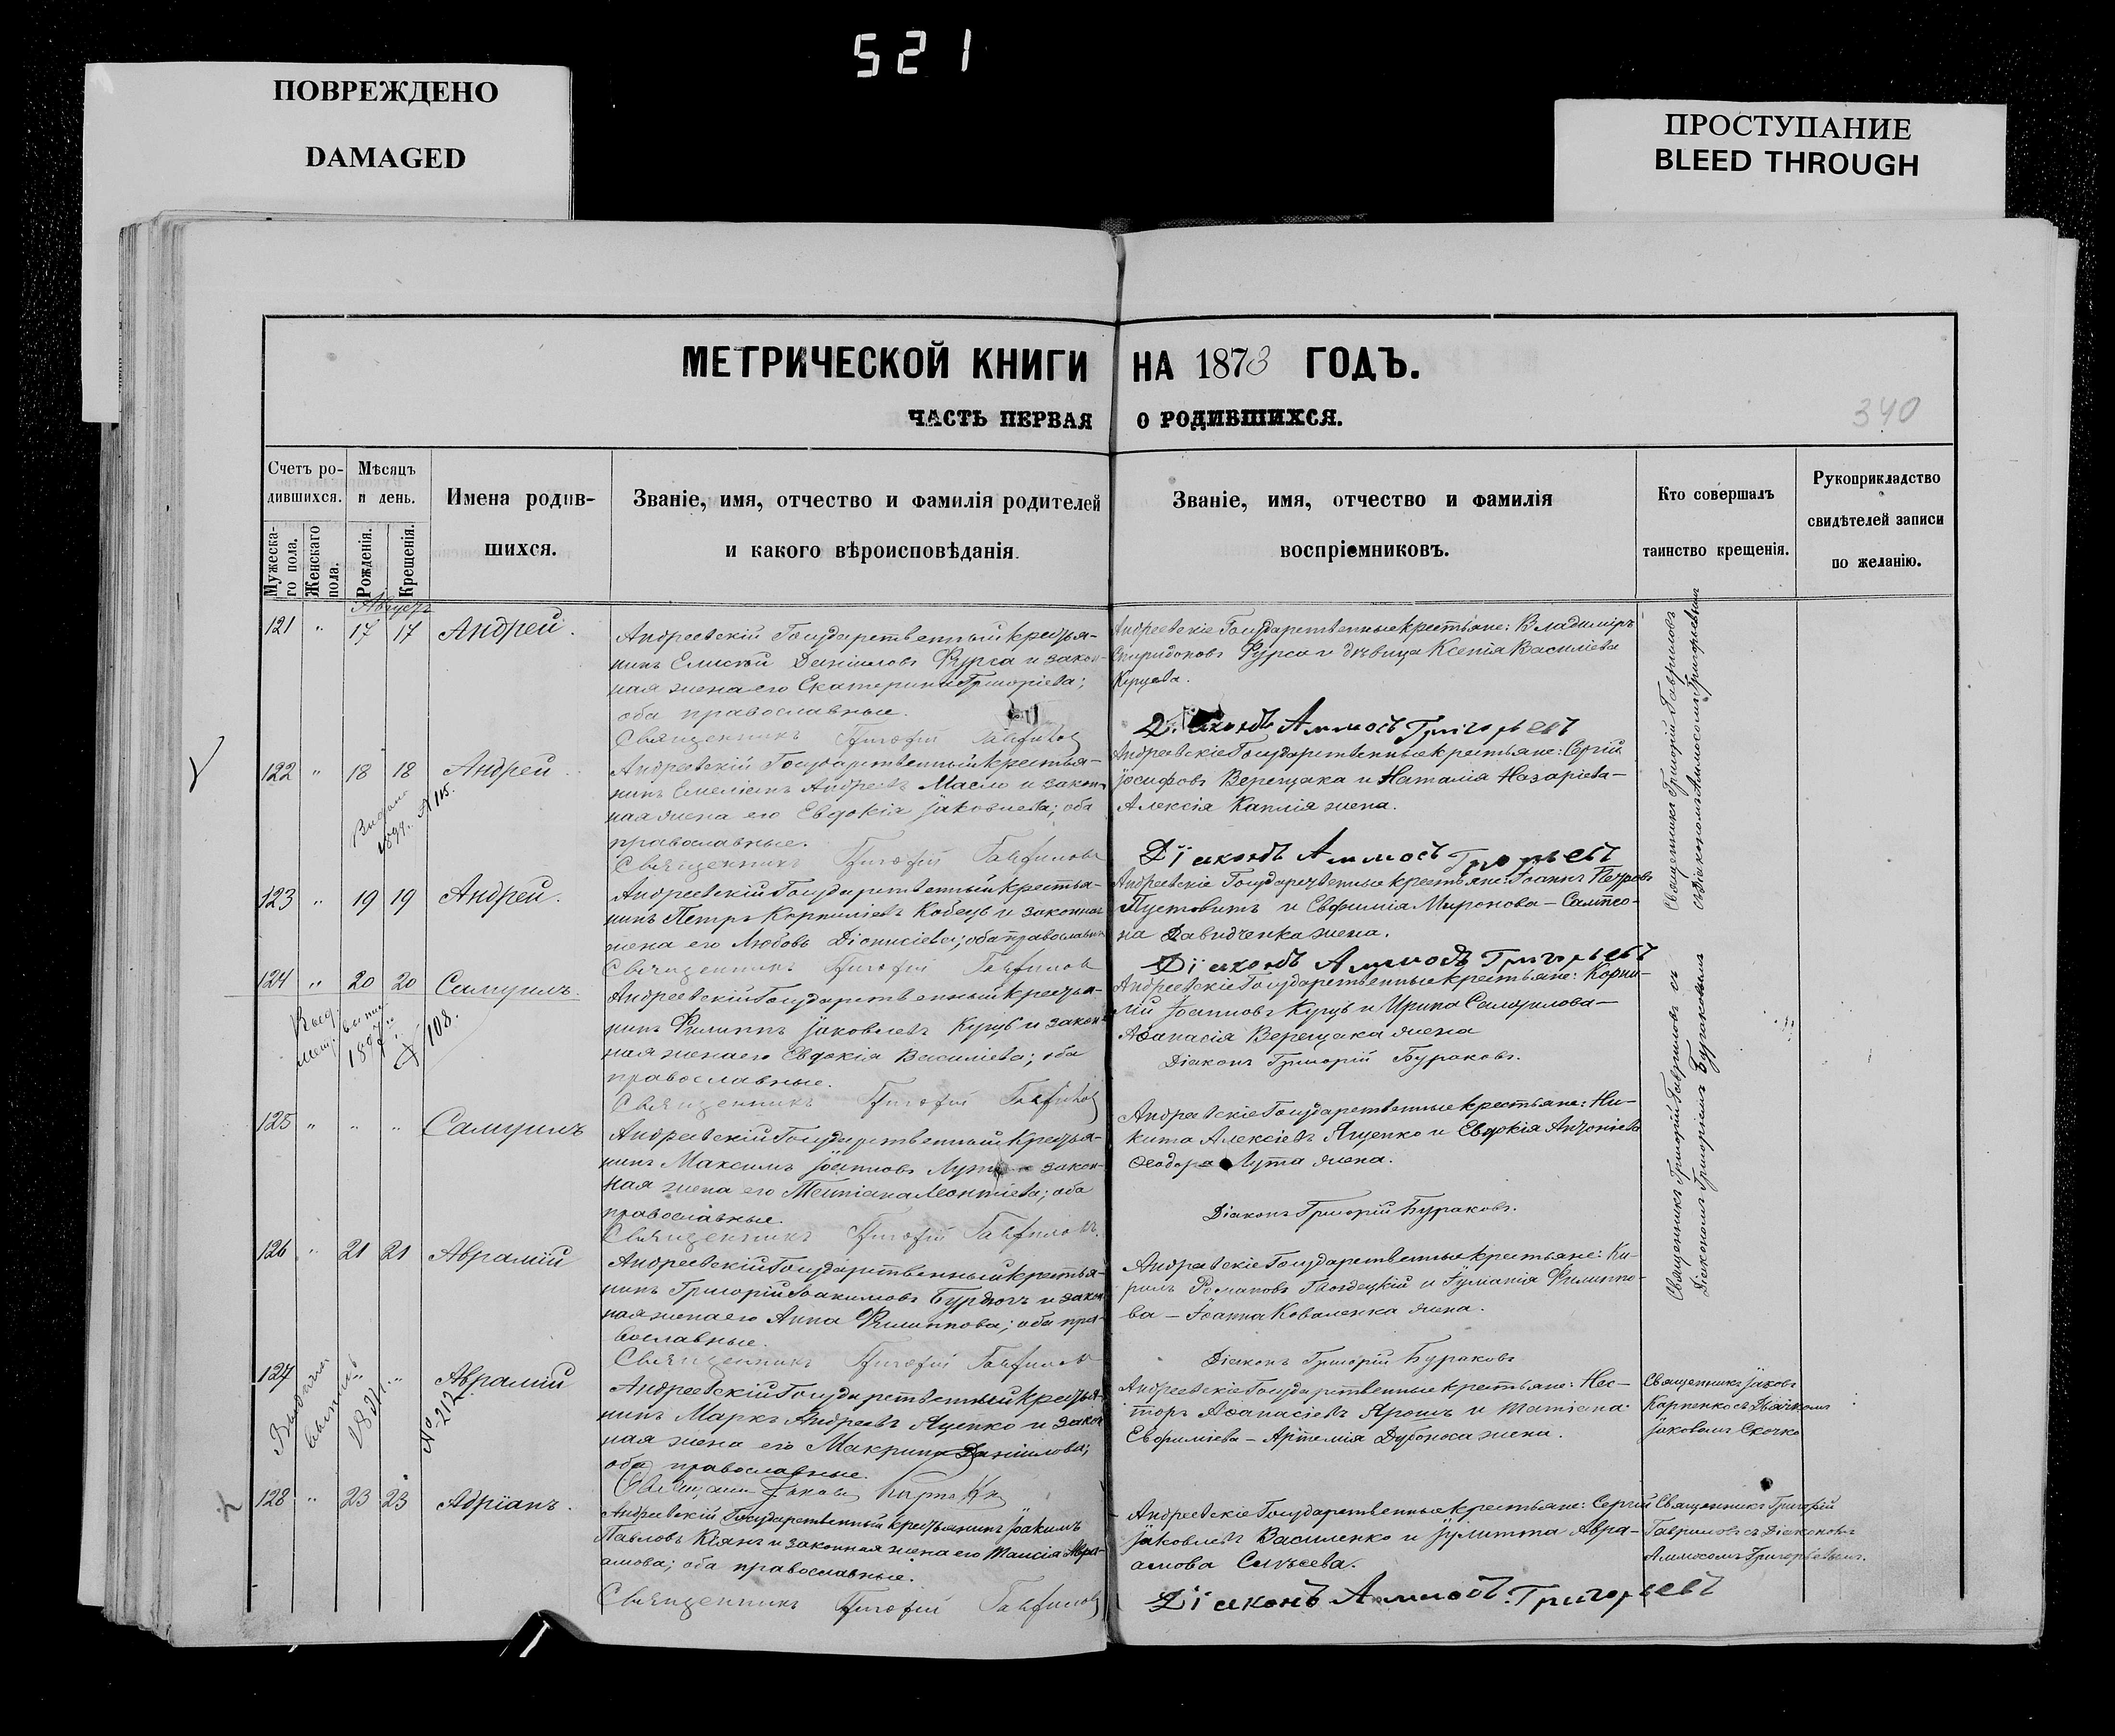 521
ПОВРЕЖДЕНО
DAMAGED
ПРОСТУПАНИЕ
BLEED THROUGH
МЕТРИЧЕСКОЙ КНИГИ НА 1873 ГОДЪ.
ЧАСТЬ ПЕРВАЯ О РОДИВШИХСЯ.
340
Счетъ ро-
дившихся.
Мужеска-
го пола.
Женскаго
пола.
Мѣсяцъ
и день.
Рожденія.
Крещенія.
Имена родив-
шихся.
Званіе, имя, отчество и фамилія родителей
и какого вѣроисповѣданія.
Званіе, имя, отчество и фамилія
воспріемниковъ.
Кто совершалъ
таинство крещенія.
Рукоприкладство
свидѣтелей записи
по желанію.
Августъ
121 " 17 17 Андрей.
Андреевскій Государственный крестья-
нинъ Елисей Даніиловъ Фурса и закон-
ная жена его Екатерина Григоріева;
оба православные.
Священникъ Григорій Гавриловъ
Андреевскіе Государственные крестьяне: Владиміръ
Спиридоновъ Фурса и дѣвица Ксенія Василіева
Діаконъ Аммосъ Григорьевъ
Священникъ Григорій Гавриловъ
съ Діакономъ Аммосомъ Григорьевымъ
122 " 18 18 Андрей
1899. №115.
Андреевскій Государственный крестья-
нинъ Емеліанъ Андреевъ Масло и закон-
ная жена его Евдокія Іаковлева; оба
православные.
Священникъ Григорій Гавриловъ
Андреевскіе Государственные крестьяне: Сергій
Іосифовъ Верещака и Наталія Назаріева —
Алексія Каплія жена.
Діаконъ Аммосъ Григорьевъ
123 " 19 19 Андрей.
Андреевскій Государственный крестья-
нинъ Петръ Корниліевъ Кобецъ и законная
жена его Любовь Діонисіева; оба православн.
Священникъ Григорій Гавриловъ
Андреевскіе Государственные крестьяне: Іоаннъ Петровъ
Пустовитъ и Евфимія Миронова — Сампсо-
на Давидченка жена.
Діаконъ Аммосъ Григорьевъ
124 " 20 20 Самуилъ.
108.
Андреевскій Государственный крестья-
нинъ Филиппъ Іаковлевъ Куцъ и закон-
ная жена его Евдокія Василіева; оба
православные.
Священникъ Григорій Гавриловъ
Андреевскіе Государственные крестьяне: Корни-
лій Іоанновъ Куцъ и Ирина Самуилова —
Аѳанасія Верещака жена
Діаконъ Григорій Бураковъ.
Священникъ Григорій Гавриловъ съ
Діакономъ Григоріемъ Бураковымъ
125 " " " Самуилъ
Андреевскій Государственный крестья-
нинъ Максимъ Іоанновъ Лута и закон-
ная жена его Татіана Леонтіева; оба
православные.
Священникъ Григорій Гавриловъ.
Андреевскіе Государственные крестьяне: Ни-
кита Алексіевъ Яценко и Евдокія Антоніева
Ѳеодора Лута жена.
Діаконъ Григорій Бураковъ.
126 " 21 21 Аврамій
Андреевскій Государственный крестья-
нинъ Григорій Іоакимовъ Бурдюгъ и закон-
ная жена его Анна Филиппова; оба пра-
вославные.
Священникъ Григорій Гавриловъ
Андреевскіе Государственные крестьяне: Ки-
рилъ Романовъ Гвоздецкій и Іуліанія Филиппо-
ва — Іоанна Коваленка жена.
Діаконъ Григорій Бураковъ
127 " " " Аврамій
№ 212.
Андреевскій Государственный крестья-
нинъ Маркъ Андреевъ Яценко и закон-
ная жена его Макрина Даніилова;
оба православные.
Андреевскіе Государственные крестьяне: Нес-
торъ Аѳанасіевъ Ярошъ и Татіана
Евфиміева — Артемія Дубоноса жена.
Священникъ Іаковъ
Карпенко съ Дьячкомъ
Іаковомъ Скочко
128 " 23 23 Адріанъ.
Андреевскій Государственный крестьянинъ Іоакимъ
Павловъ Кіянъ и законная жена его Таисія Авра-
амова; оба православные.
Священникъ Григорій Гавриловъ
Андреевскіе Государственные крестьяне: Сергій
Іаковлевъ Василенко и Іулитта Авра-
амова
Діаконъ Аммосъ Григорьевъ
Священникъ Григорій
Гавриловъ съ Діакономъ
Аммосомъ Григорьевымъ.